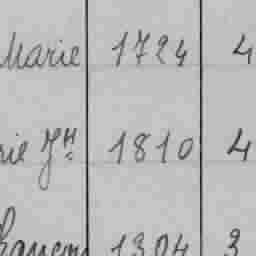 Marie 1724 4
rie Jh 1810 4
1304 3